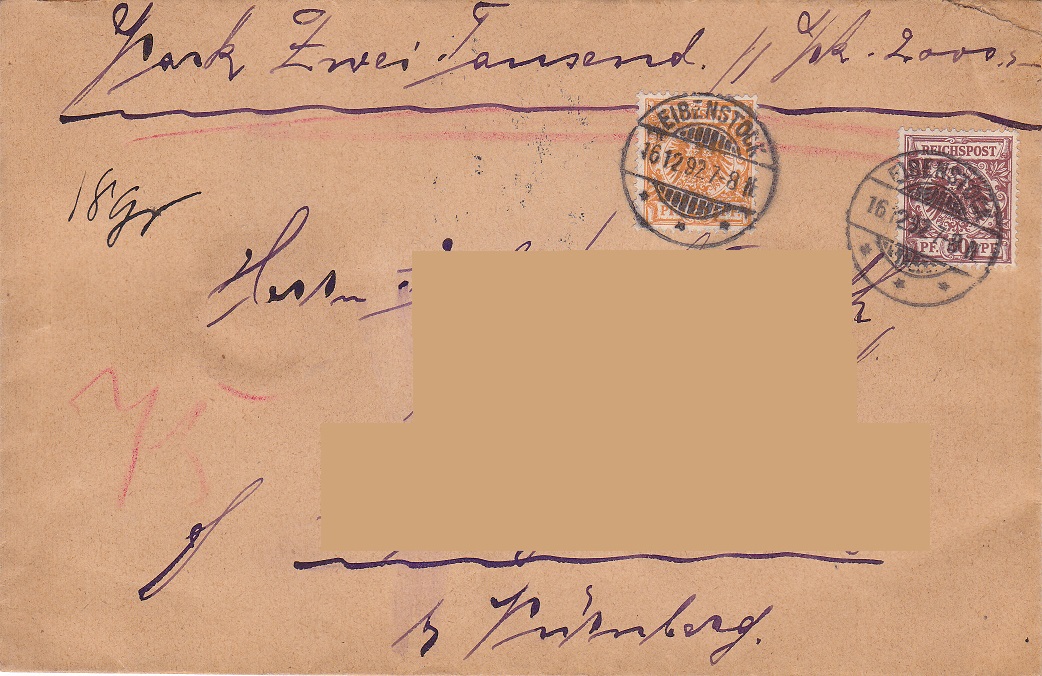 Mark Zwei Tausend. // Mk. 2000.
EIBENSTOCK
16 12 92 7-8 N.
REICHSPOST
EIBENSTOCK
16 12 92 7-8 N.
PF. PF.
18 Gr
Herrn
b Nürnberg.